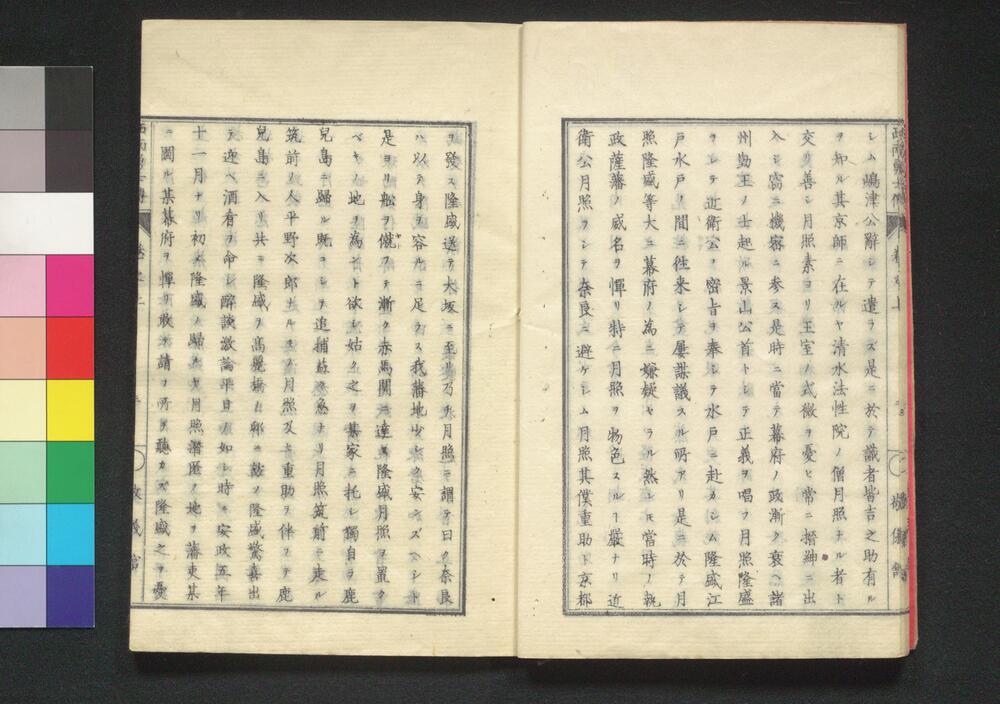 シム嶋津公辭シテ遣ラス是ニ於テ識者皆吉之助有ル
ヲ知ル其京師ニ在ルヤ清水法性院ノ僧月照ナル者ト
交リ善シ月照素ヨリ王室ノ式微ヲ憂ヒ常ニ搢紳ニ出
入シ窃ニ機密ニ参ス是時ニ當テ幕府ノ政漸ク衰ヘ諸
州勤王ノ士起ル景山公首トシテ正義ヲ唱フ月照隆盛
ヲシテ近衛公ノ密旨ヲ奉シテ水戸ニ赴カシム隆盛江
戸水戸ノ間ニ往来シテ屢謀議スル所アリ是ニ於テ月
照隆盛等大ニ幕府ノ為ニ嫌疑セラル然レ𪜈當時ノ執
政薩藩ノ威名ヲ憚リ特ニ月照ヲ物色スルヿ嚴ナリ近
衛公月照ヲシテ奈良ニ避ケシム月照其僕重助ト京都
ヲ發ス隆盛送テ大坂ニ至リ乃チ月照ニ謂テ曰ク奈良
ハ以テ身ヲ容ルニ足ラス我藩地少シク安ンズヘシト
是ヨリ舩ヲ僦フテ漸ク赤馬關ニ達ス隆盛月照ヲ置ク
ベキノ地ヲ為ント欲シ姑ク之ヲ某家ニ托シ獨自ラ鹿
兒島ニ歸ル既ニシテ追捕益急ナリ月照筑前ニ走ル
筑前ノ人平野次郎ナルモノ月照及ヒ重助ヲ伴フテ鹿
兒島ニ入リ共ニ隆盛ヲ髙麗橋ノ邸ニ敲ク隆盛驚喜出
テ迎ヘ酒肴ヲ命シ醉談激論平日ノ如シ時ニ安政五年
十一月ナリ初メ隆盛ノ歸ルヤ月照潜匿ノ地ヲ藩吏某
ニ圖ル某幕府ヲ憚リ敢テ請フ所ヲ聽カズ隆盛之ヲ憂